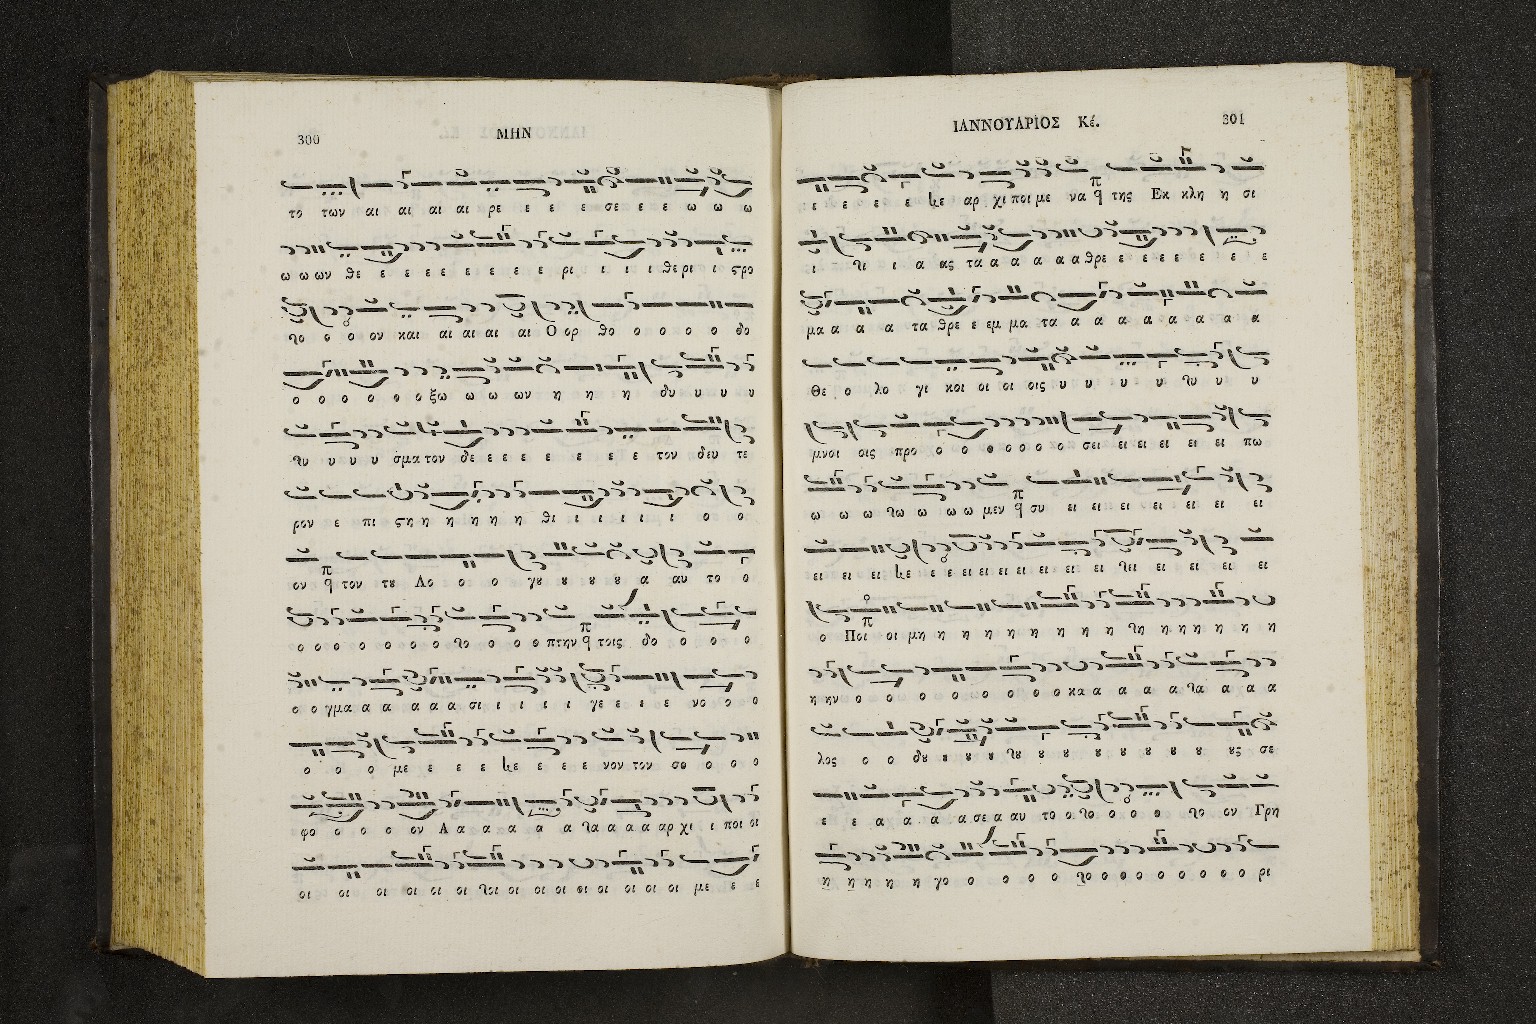 300 ΜΗΝ
το των αι αι αι αι ρε ε ε ε σε ε ε ω ω ω
ω ω ων θε ε ε ε ε ε ε ε ε ρι ι ι ι ι θε ρι ι ςρο
το ο ο ον και αι αι αι αι Ο ορ θο ο ο ο ο δο
ο ο ο ο ο ο ξω ω ω ων η η η δυ υ υ υ
τυ υ υ υ σμα τον δε ε ε ε ε ε ε ε τον δευ τε
ρον ε πι ςη η η η η η θι ι ι ι ι ι ο ο
ον τον τȣ Λο ο ο γȣ ȣ ȣ ȣ ȣ α αυ το ο
ο ο ο ο ο ο ο ο το ο ο ο πτην τοις δο ο ο ο
ο ο γμα α α α α α σι ι ι ι ι γε ε ε ε νο ο ο
ο ο ο με ε ε ε ε ε ε ε νον τον σο ο ο ο
φο ο ο ο ον Α α α α α α α τα α α α αρ χι ι ποι οι
οι οι οι οι οι οι τοι οι οι οι οι οι οι οι οι με ε ε
ΙΑΝΝΟΥΑΡΙΟΣ Κέ. 301
ε ε ε ε ε αρ χι ποι με να της Εκ κλη η σι
ι τι ι α ας τα α α α α α θρε ε ε ε ε ε ε ε
μα α α α τα θρε ε εμ μα τα α α α α α α α α
Θε ο λο γι κοι οι οι οι οις υ υ υ υ υ τυ υ υ
μνοι οις προ ο ο ο ο ο ο ο σει ει ει ει ει ει πω
ω ω ω τω ω ω ω μεν συ ει ει ει ει ει ει ει
ει ει ει ε ε ε ει ει ει ει ει ει ει ει τει ει ει ει ει
ο Ποι οι μη η η η η η η η η τη η η η η η η
η ην ο ο ο ο ο ο ο ο κα α α α α α τα α α α
λος ο ο δȣ ȣ ȣ ȣ τȣ ȣ ȣ ȣ ȣ ȣ ȣ ȣ ȣ ȣς σε
ε ε α α α α σε α αυ το ο το ο ο ο το ον Γρη
η η η η η γο ο ο ο ο το ο ο ο ο ο ο ο ο ο ρι